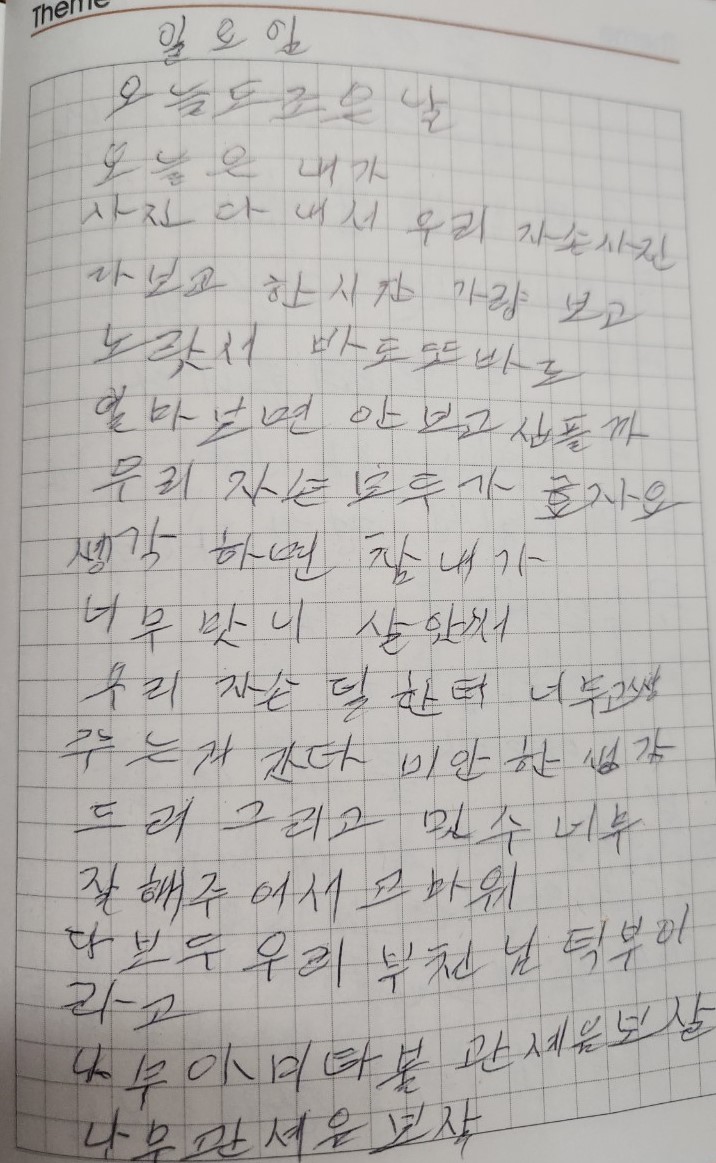 Theme
일요일
오늘도 조은 날
오늘은 내가
사진 다 내서 우리 자손사진
다보고 한시간 가량 보고
노랏서 바도 또바도
얼마보면 안보고십플까
우리 자손 모두가 효자요
생각 하면 참 내가
너무 만니 살앗써
우리 자손 덜 한터 너무
주는
미안한 생각
드려 그리고 민수 너무
잘해주어서 고마워
다 보두 우리 부천님 턱부이
라고
나무아미타불 관세음보살
나무관세음보살